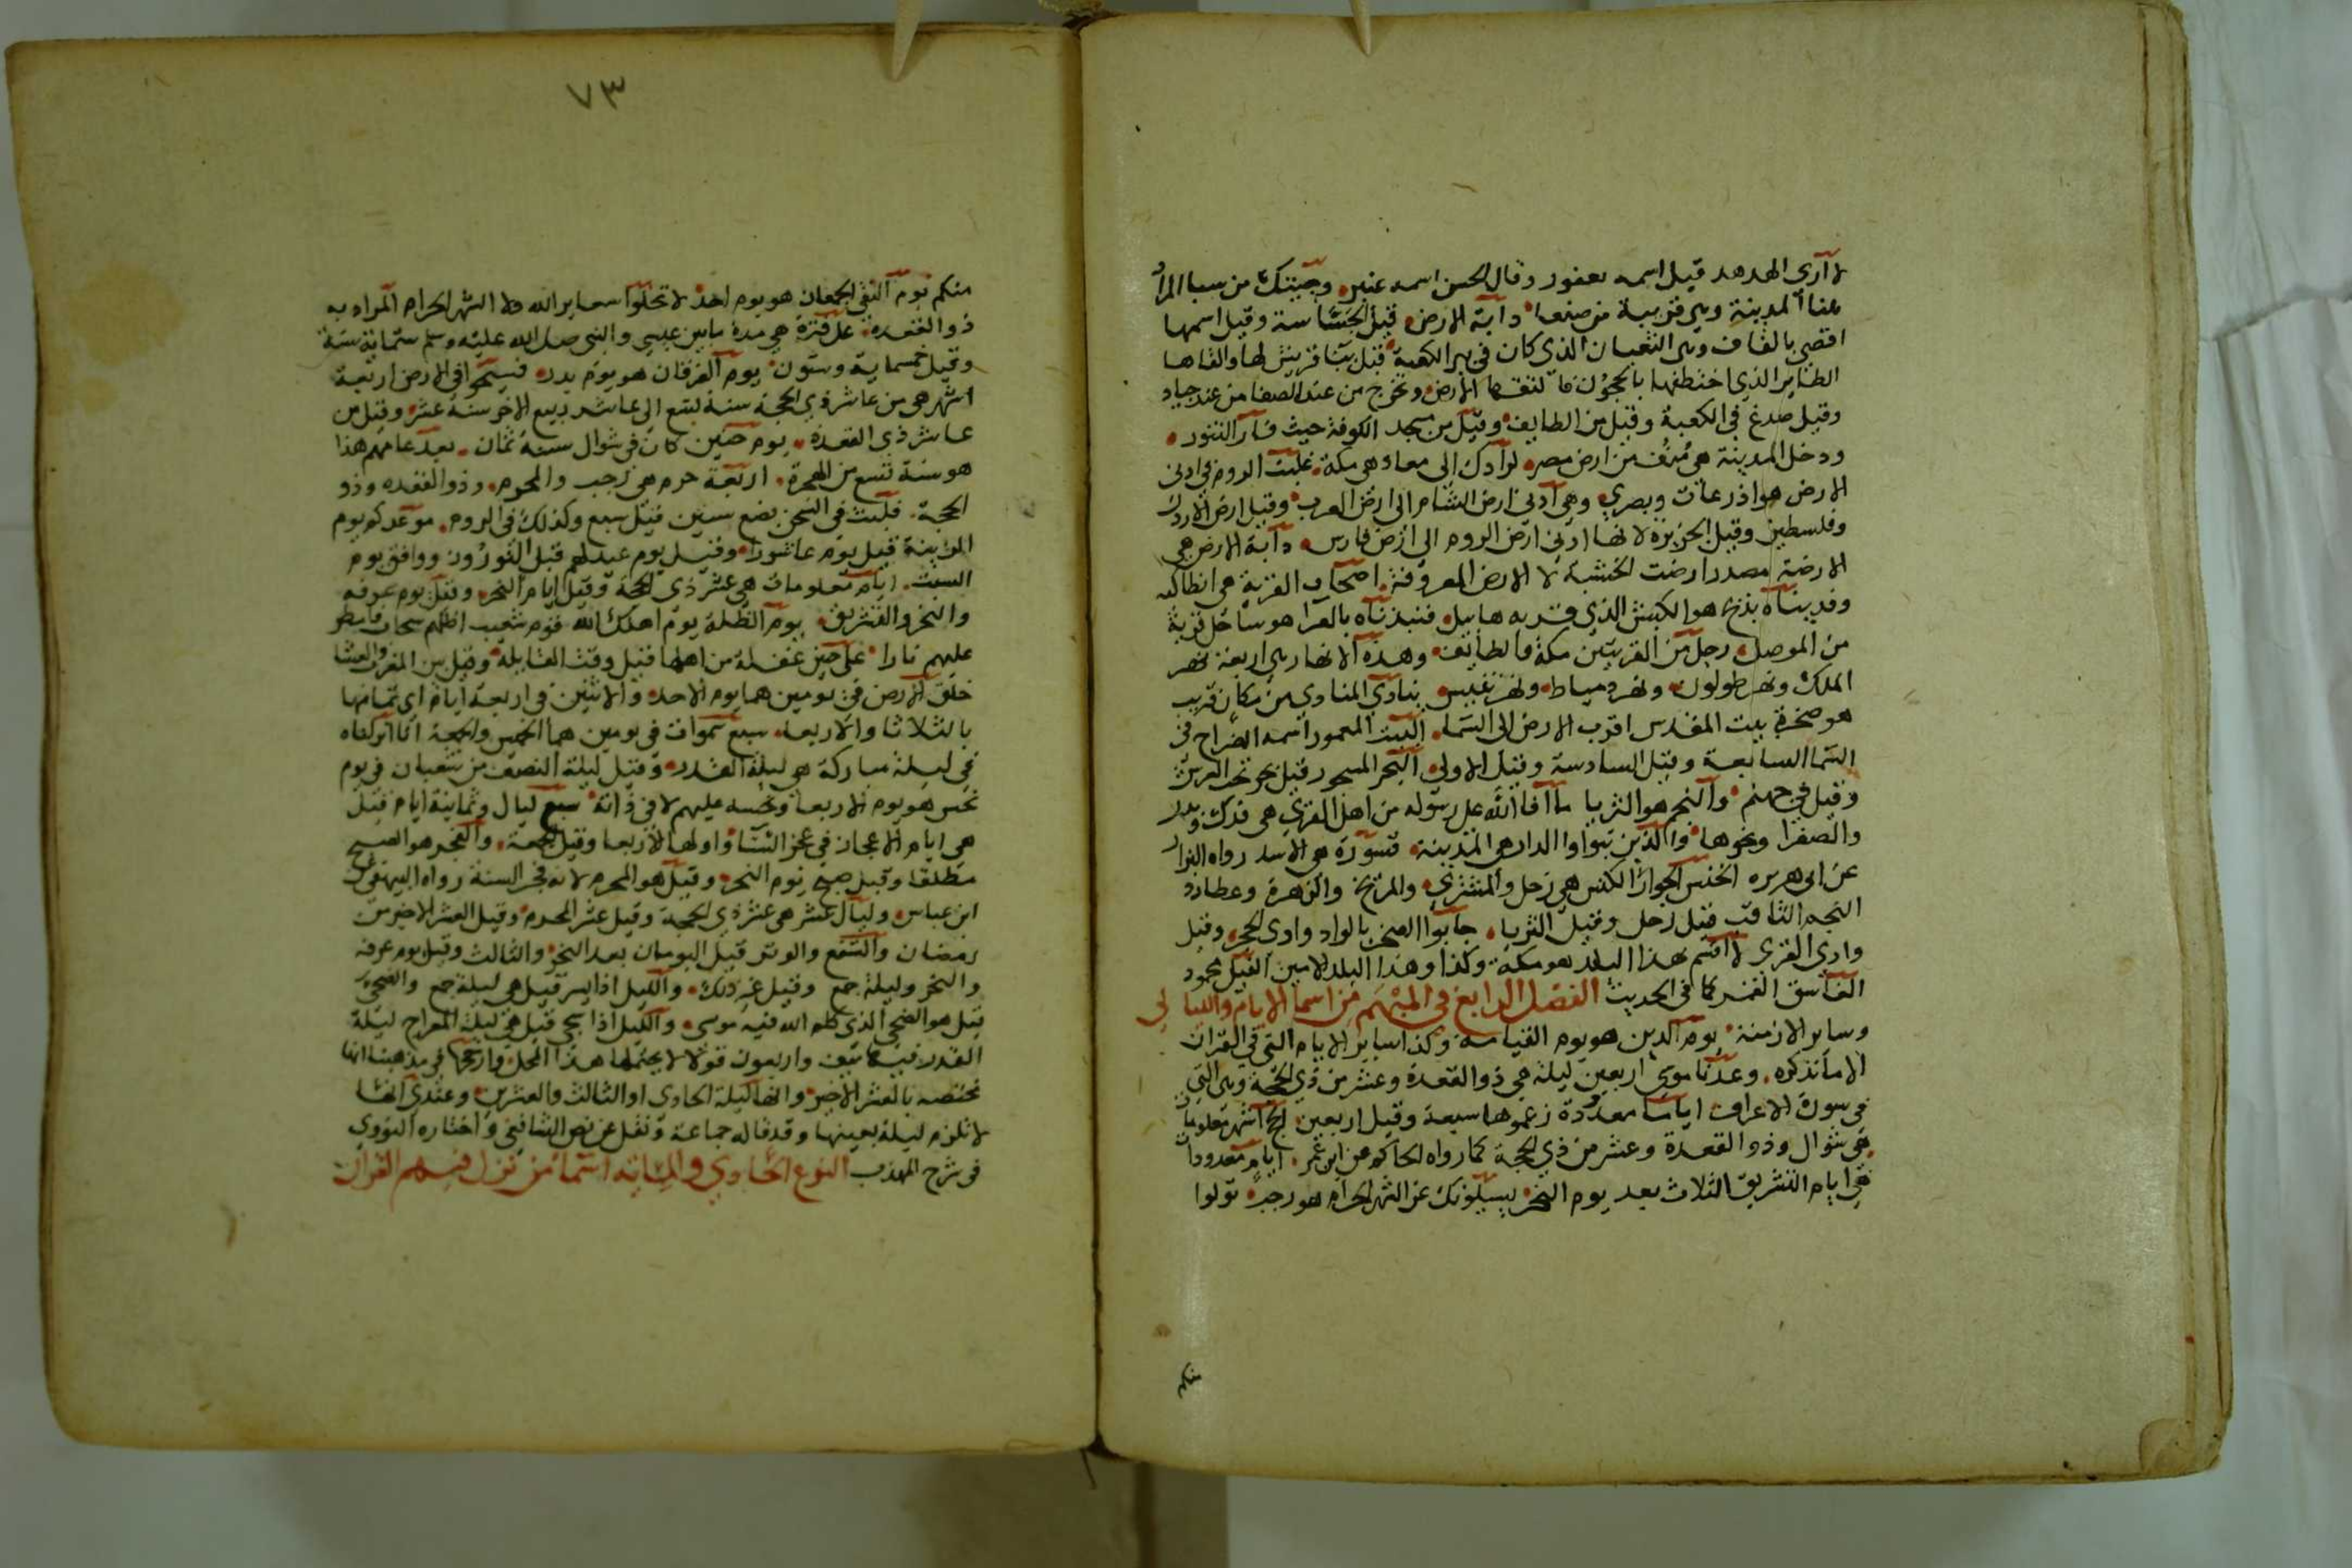 لا ارى الهدهد قيل اسمه يعفور وقال الحسن اسمه عنبر وجيتك من سبا المراد
هنا المدينة وهي قريبة من صنعا دابة الارض قيل الجساسة وقيل اسمها
اقصى بالقاف وهي الثعبان الذي كان في بير الكعبة قبل بنا قريش لها والقاها
الطاير الذي اختطفها بالحجون فالتقمها الارض وتخرج من عند الصفا من عند جياد
وقيل صدع في الكعبة وقيل من الطايف وقيل من مسجد الكوفة حيث فار التنور
ودخل المدينة هي منف من ارض مصر لرادك الى معاد هي مكة غلبت الروم في ادنى
الارض هو اذرعات وبصرى وهي ادنى ارض الشام الى ارض العرب وقيل ارض الاردن
وفلسطين وقيل الجزيرة لانها ادنى ارض الروم الى ارض فارس دابة الارض هي
الارضة مصدر ارضت الخشبة لا الارض المعروفة اصحاب القرية هي انطاكيه
وفديناه بذبح هو الكبش الذي قربه هابيل فنبذناه بالعرا هو ساحل قرية
من الموصل رجل من القريتين مكة والطايف وهذه الانهار هي اربعة نهر
الملك ونهر طولون ونهر دمياط ونهر تنيس ينادي المنادي من مكان قريب
هو صخرة بيت المقدس اقرب الارض الى السما البيت المعمور اسمه الضراح في
السما السابعة وقيل السادسة وقيل الاولى البحر المسجور قيل بحر تحت العرش
وقيل في جهنم والنجم هو الثريا ما افا الله على رسوله من اهل القرى هي فدك وبدر
والصفرا ونحوها والذين تبواوا الدار هي المدينة قسورة هو الاسد رواه البزار
عن ابي هريره الخنس الجوار الكنس هي زحل والمشتري والمريخ والزهرة وعطارد
النجم الثاقب قيل زحل وقيل الثريا جابوا الصخر بالواد وادى الحجر وقيل
وادي القرى لا اقسم بهذا البلد هو مكة وكذا وهذا البلد الامين الفيل محمود
الفاسق القمر كما في الحديث الفصل الرابع في المبهم من اسما الايام والليالي
وساير الازمنة يوم الدين هو يوم القيامة وكذا ساير الايام التي في القران
الا ما نذكره وعدنا موسى اربعين ليلة هي ذو القعدة وعشر من ذي الحجة وهي التي
في سورة الاعراف اياما معدودة زعموها سبعة وقيل اربعين الحج اشهر معلومات
هي شوال وذو القعدة وعشر من ذي الحجة كما رواه الحاكم عن ابن عمر ايام معدودات
هي ايام التشريق الثلاث بعد يوم النحر يسيلونك عن الشهر الحرام هو رجب تولوا
منكم
٧٣
منكم يوم التقى الجمعان هو يوم احد لا تحلوا شعاير الله ولا الشهر الحرام المراد به
ذو القعدة على فترة هي مدة ما بين عيسى والنبي صلى الله عليه وسلم ستماية سنة
وقيل خمسماية وستون يوم الفرقان هو يوم بدر فسيحوا في الارض اربعة
اشهر هي من عاشر ذي الحجة سنة تسع الى عاشر ربيع الاخر سنة عشر وقيل من
عاشر ذي القعدة يوم حنين كان في شوال سنة ثمان بعد عامهم هذا
هو سنة تسع من الهجرة اربعة حرم هي رجب والمحرم وذو القعده وذو
الحجة فلبث في السجن بضع سنين قيل سبع وكذلك في الروم موعدكم يوم
الزينة قيل يوم عاشورا وقيل يوم عيد لهم قبل النوروز ووافق يوم
السبت ايام معلومات هي عشر ذي الحجة وقيل ايام النحر وقيل يوم عرفه
والنحر والتشريق يوم الظلة يوم اهلك الله قوم شعيب اظلهم سحاب فامطر
عليهم نارا على حين غفلة من اهلها قيل وقت القايله وقيل بين المغرب والعشا
خلق الارض في يومين هما يوم الاحد والاثنين في اربعة ايام اي تمامها
بالثلاثا والاربعا سبع سموات في يومين هما الخميس والجمعة انا انزلناه
في ليلة مباركة هي ليلة القدر وقيل ليلة النصف من شعبان في يوم
نحس هو يوم الاربعا ونحسه عليهم لا في ذاته سبع ليال وثمانية ايام قيل
هي ايام الاعجاز في عجز الشتا واولها الاربعا وقيل الجمعة والفجر هو الصبح
مطلقا وقيل صبح يوم النحر وقيل هو المحرم لانه فجر السنة رواه البيهقي عن
ابن عباس وليال عشر هي عشر ذي الحجة وقيل عشر المحرم وقيل العشر الاخير من
رمضان والشفع والوتر قيل اليومان بعد النحر والثالث وقيل يوم عرفه
والنحر وليلة جمع وقيل غير ذلك والليل اذا يسر قيل هي ليلة جمع والضحى
قيل هو الضحى الذي كلم الله فيه موسى والليل اذا سجى قيل هي ليلة المعراج ليلة
القدر فيها نيف واربعون قولا لا يحتملها هذا المحل وارجحها في مذهبنا انها
مختصه بالعشر الاخير وانها ليلة الحادي او الثالث والعشرين وعندي انها
لا تلزم ليلة بعينها وقد قاله جماعة ونقل عن نص الشافعي واختاره النووي
في شرح المهذب النوع الحادي والمايه اسما من نزل فيهم القران